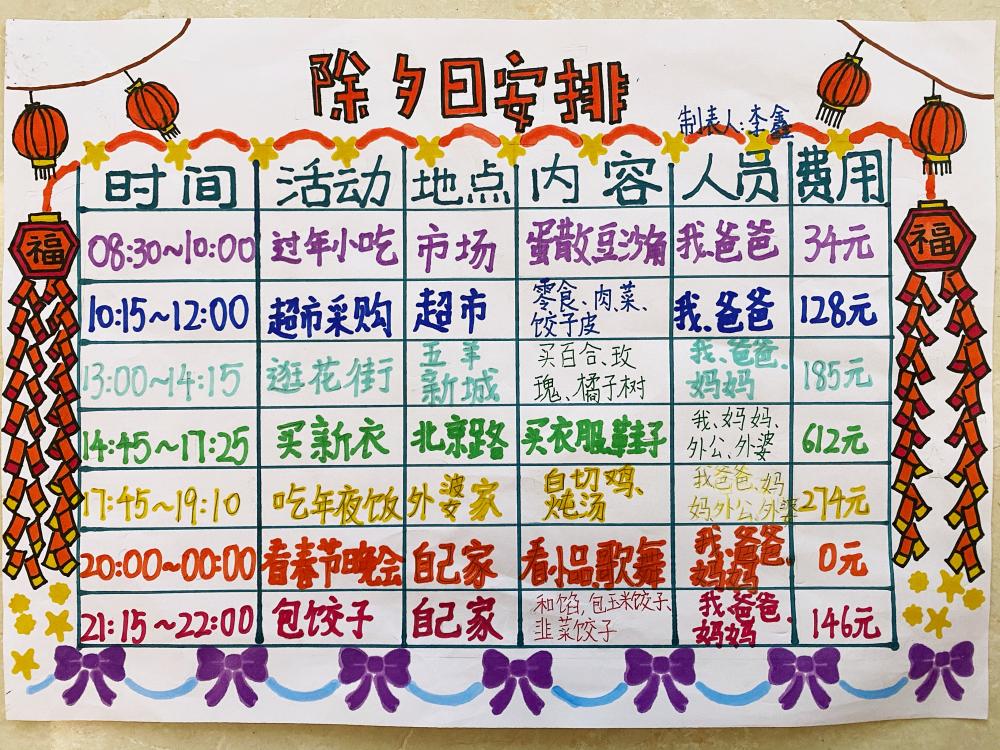 除夕日安排
制表人:李鑫
福
福
时间 活动 地点 内容 人员 费用
08:30~10:00 过年小吃 市场 蛋散豆沙角 我、爸爸 34元
10:15~12:00 超市采购 超市 零食、肉菜、
饺子皮 我、爸爸 128元
13:00~14:15 逛花街 五羊
新城 买百合、玫
瑰、橘子树 我、爸爸、
妈妈 185元
14:45~17:25 买新衣 北京路 买衣服鞋子 我、妈妈、
外公、外婆 612元
17:45~19:10 吃年夜饭 外婆家 白切鸡、
炖汤 我爸爸、妈
妈外公、外婆 274元
20:00~00:00 看春节晚会 自己家 看小品歌舞 我、爸爸、
妈妈 0元
21:15~22:00 包饺子 自己家 和馅,包玉米饺子、
韭菜饺子 我、爸爸、
妈妈 146元